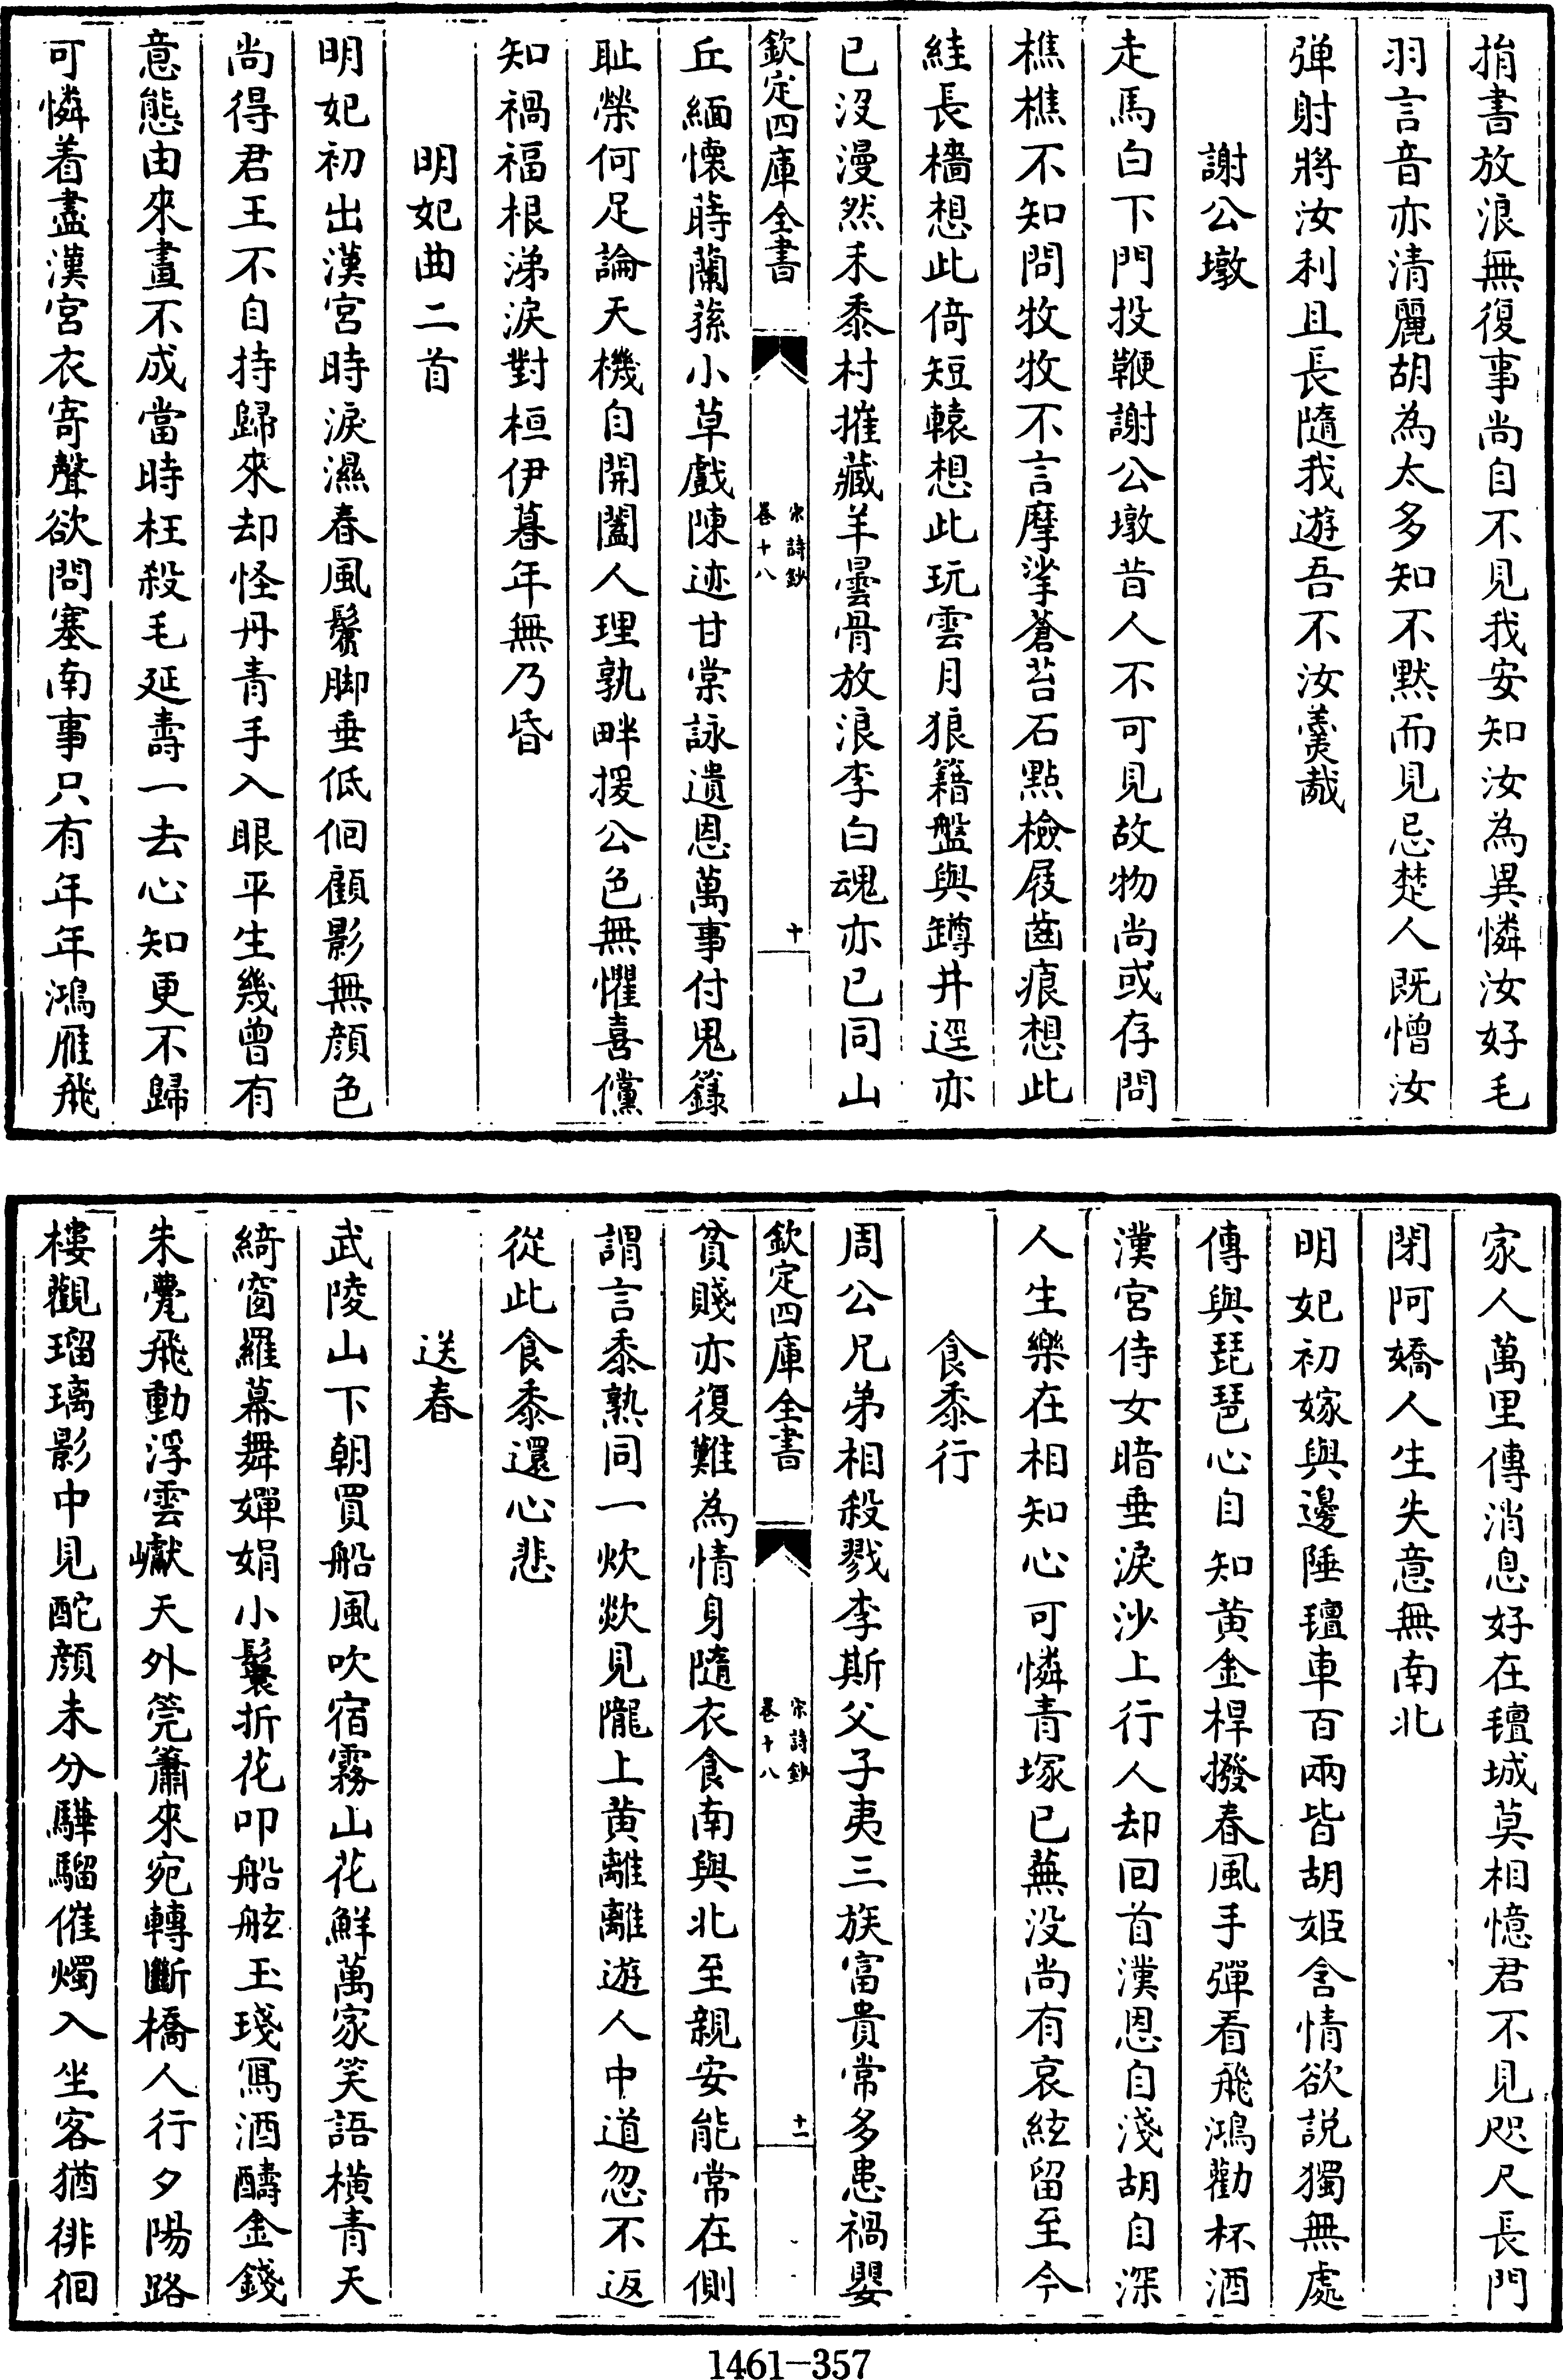 捐書放浪無復事尚自不見我安知汝為異憐汝好毛
羽言音亦清麗胡為太多知不默而見忌楚人既憎汝
弹射將汝利且長隨我遊吾不汝羹胾
謝公墩
走馬白下門投鞭謝公墩昔人不可見故物尚或存問
樵樵不知問牧牧不言摩挲蒼苔石點檢屐齒痕想此
絓長檣想此倚短轅想此玩雲月狼籍盤與罇井逕亦
已沒漫然禾黍村摧藏羊曇骨放浪李白魂亦已同山
欽定四庫全書
宋詩鈔
卷十八
十
丘緬懷蒔蘭蓀小草戲陳迹甘棠詠遺恩萬事付鬼籙
耻榮何足論天機自開闔人理孰畔援公色無懼喜儻
知禍福根涕淚對桓伊暮年無乃昏
明妃曲二首
明妃初出漢宮時淚濕春風鬢脚垂低佪顧影無顔色
尚得君王不自持歸來却怪丹青手入眼平生幾曾有
意態由來畫不成當時枉殺毛延壽一去心知更不歸
可憐着盡漢宮衣寄聲欲問塞南事只有年年鴻雁飛
家人萬里傳消息好在氊城莫相憶君不見咫尺長門
閉阿嬌人生失意無南北
明妃初嫁與邊陲氊車百兩皆胡姬含情欲說獨無處
傳與琵琶心自知黄金桿撥春風手彈看飛鴻勸杯酒
漢宮侍女暗垂淚沙上行人却回首漢恩自淺胡自深
人生樂在相知心可憐青塚已蕪没尚有哀絃留至今
食黍行
周公兄弟相殺戮李斯父子夷三族富貴常多患禍嬰
欽定四庫全書
宋詩鈔
卷十八
十一
貧賤亦復難為情身隨衣食南與北至親安能常在側
謂言黍熟同一炊欻見隴上黄離離遊人中道忽不返
從此食黍還心悲
送春
武陵山下朝買船風吹宿霧山花鮮萬家笑語橫青天
綺窗羅幕舞嬋娟小鬟折花叩船舷玉琖寫酒醻金錢
朱甍飛動浮雲巘天外筦簫來宛轉斷橋人行夕陽路
樓觀瑠璃影中見酡顔未分驊騮催燭入坐客猶徘徊
1461—357